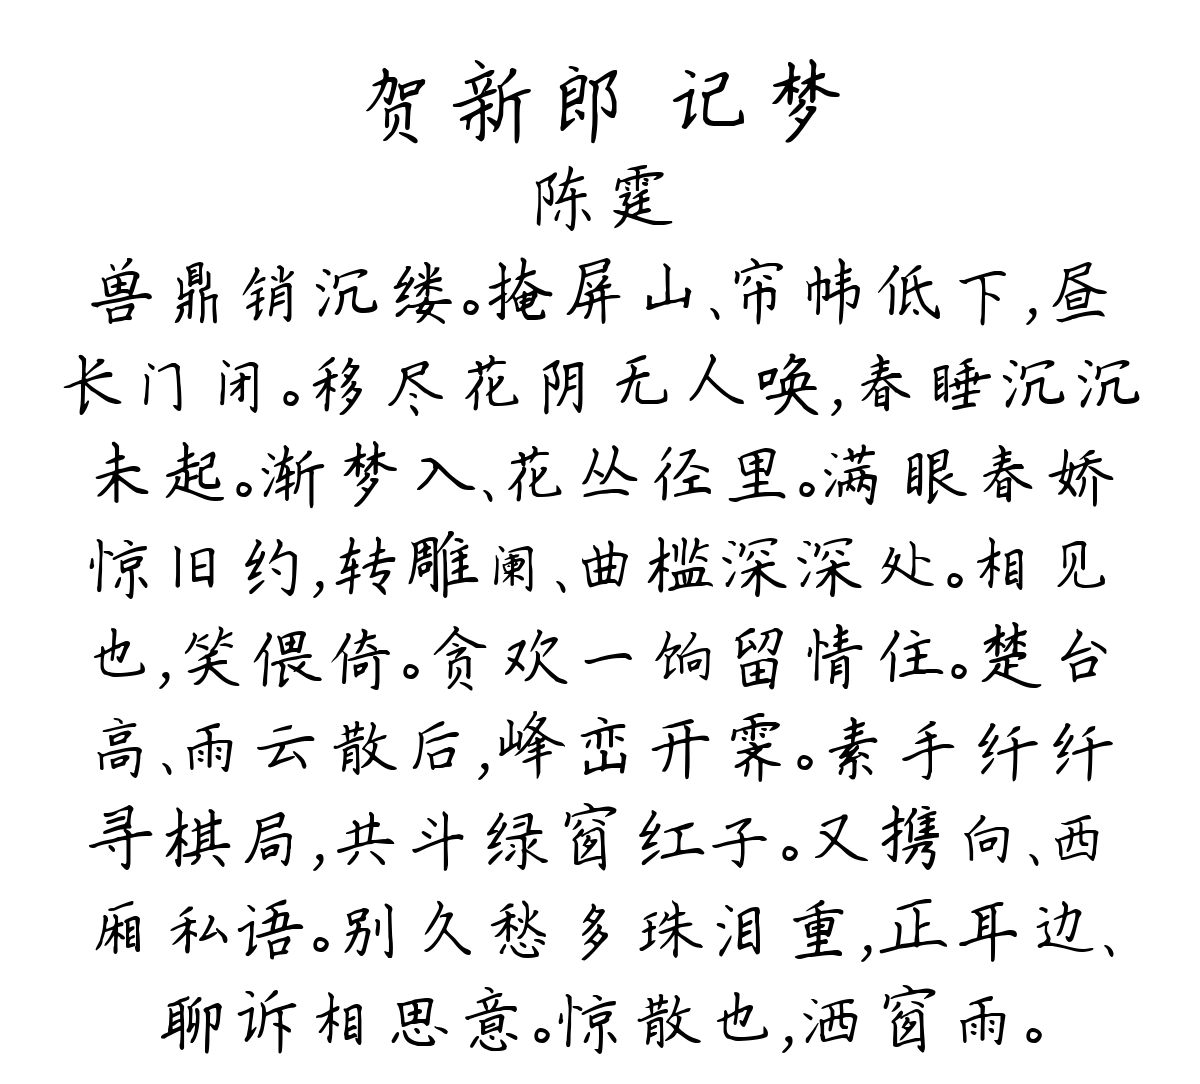 贺新郎 记梦
陈霆
兽鼎销沉缕。掩屏山、帘帏低下,昼
长门闭。移尽花阴无人唤,春睡沉沉
未起。渐梦入、花丛径里。满眼春娇
惊旧约,转雕阑、曲槛深深处。相见
也,笑偎倚。贪欢一饷留情住。楚台
高、雨云散后,峰峦开霁。素手纤纤
寻棋局,共斗绿窗红子。又携向、西
厢私语。别久愁多珠泪重,正耳边、
聊诉相思意。惊散也,洒窗雨。